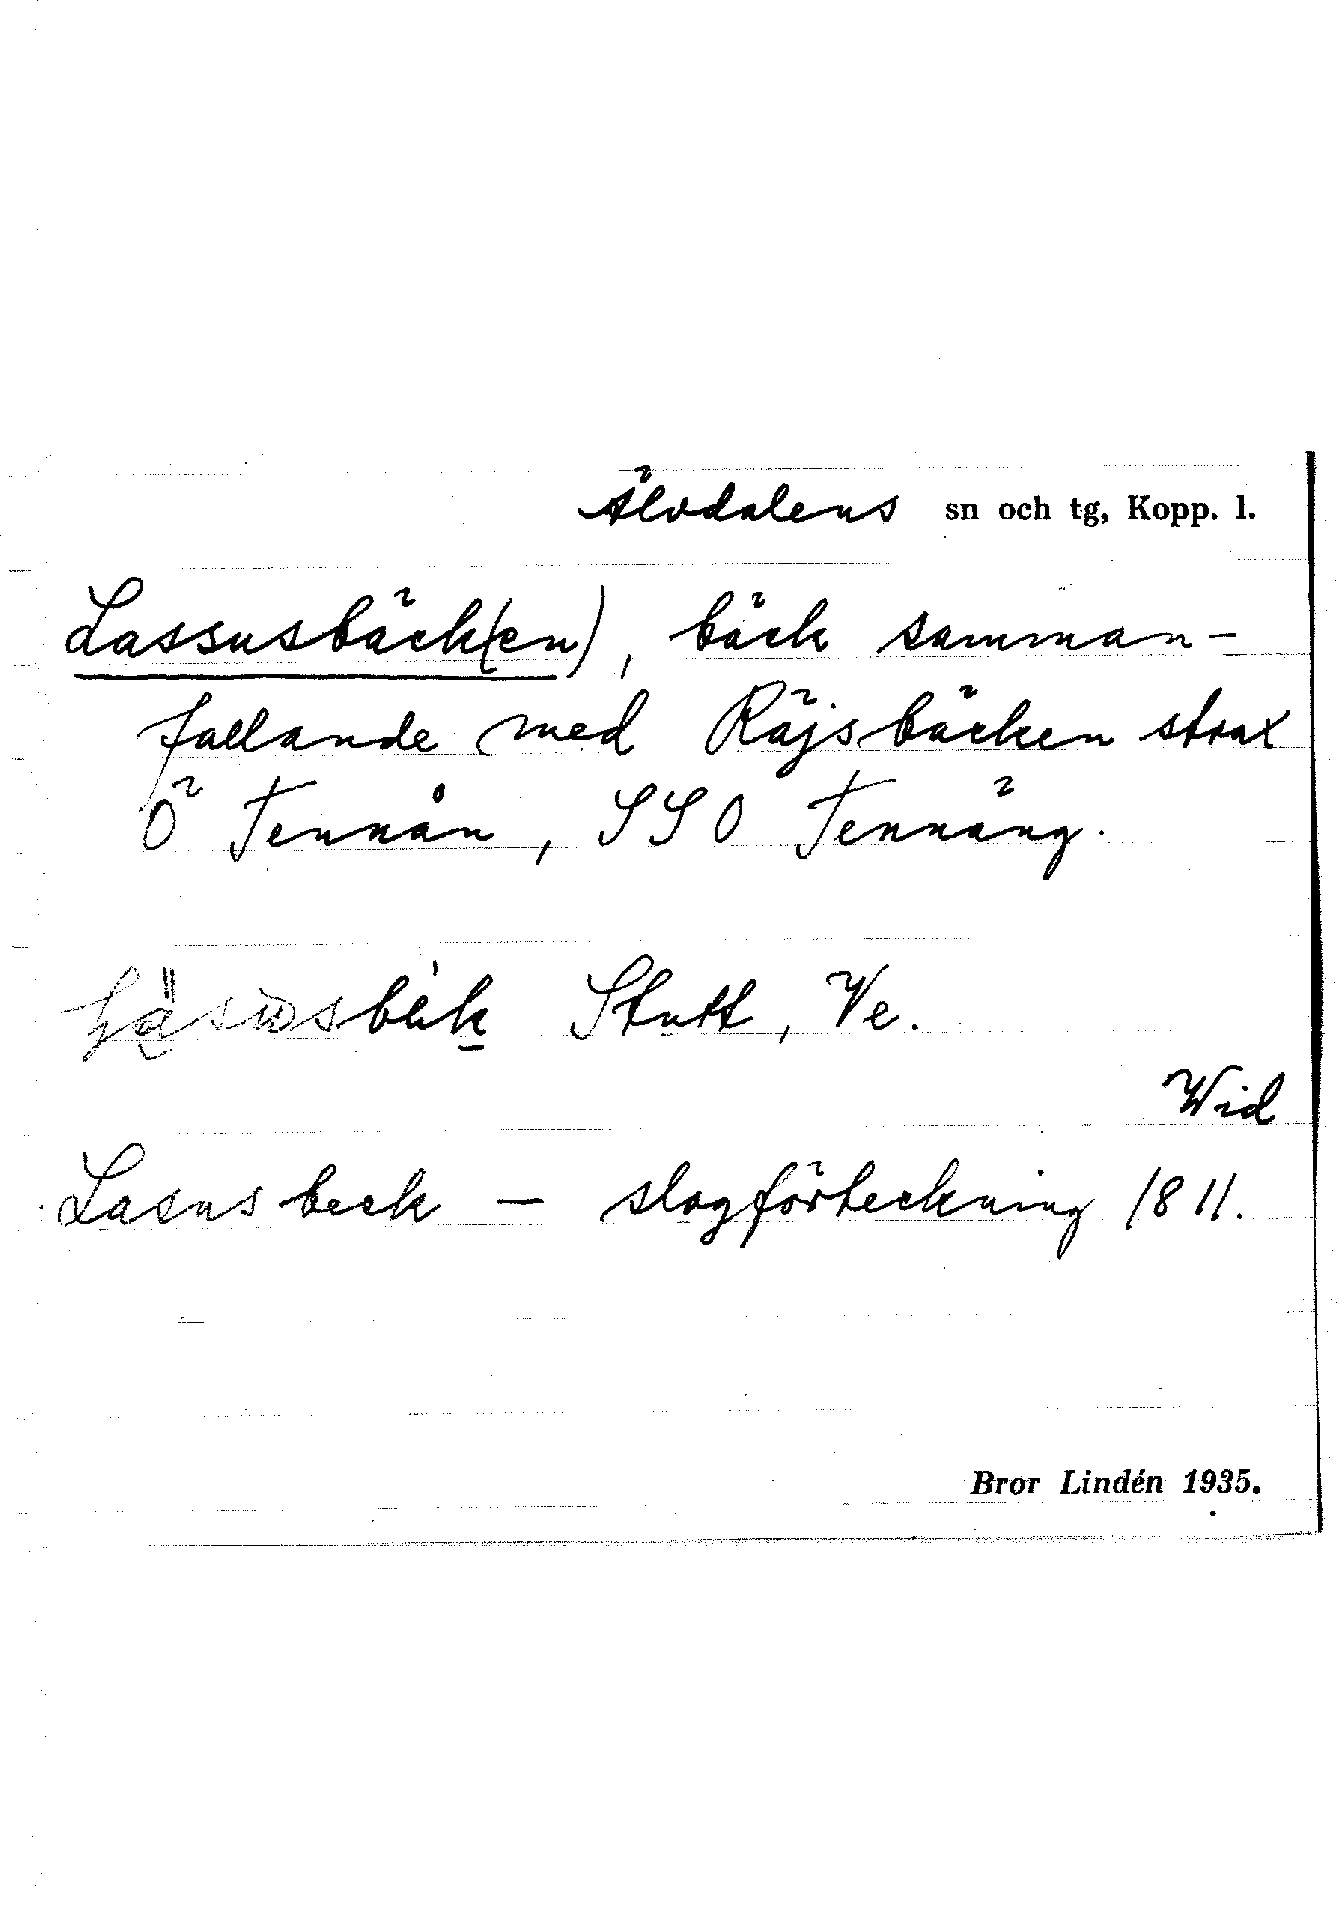 Älvdalens sn och tg, Kopp. l.
Lassusbäck(en), bäck samman-
fallande med Räjsbäcken strax
Ö Tennån, SSO Tennäng.
Stutt, Ve.
Wid
Lasusbeck — slogförteckning 1811.
Bror Lindén 1935.